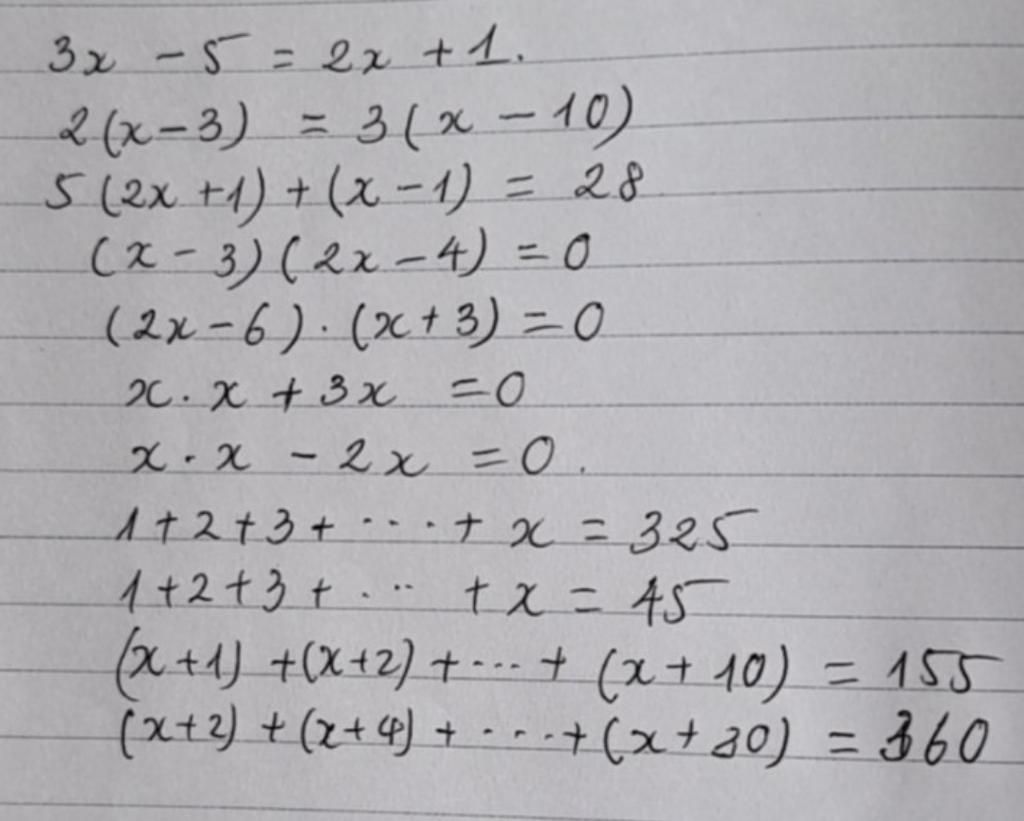 3x - 5 = 2x + 1.
2(x-3) = 3(x - 10)
5(2x+1)+(x-1) = 28
(x-3)(2x-4) = 0
(2x-6).(x+3) = 0
x.x + 3x = 0
x.x - 2x = 0.
1+2+3+....+ x = 325
1+2+3+ ... + x = 45
(x+1) +(x+2) +...+ (x+10) = 155
(x+2) + (x+4) + ....+ (x+30) = 360